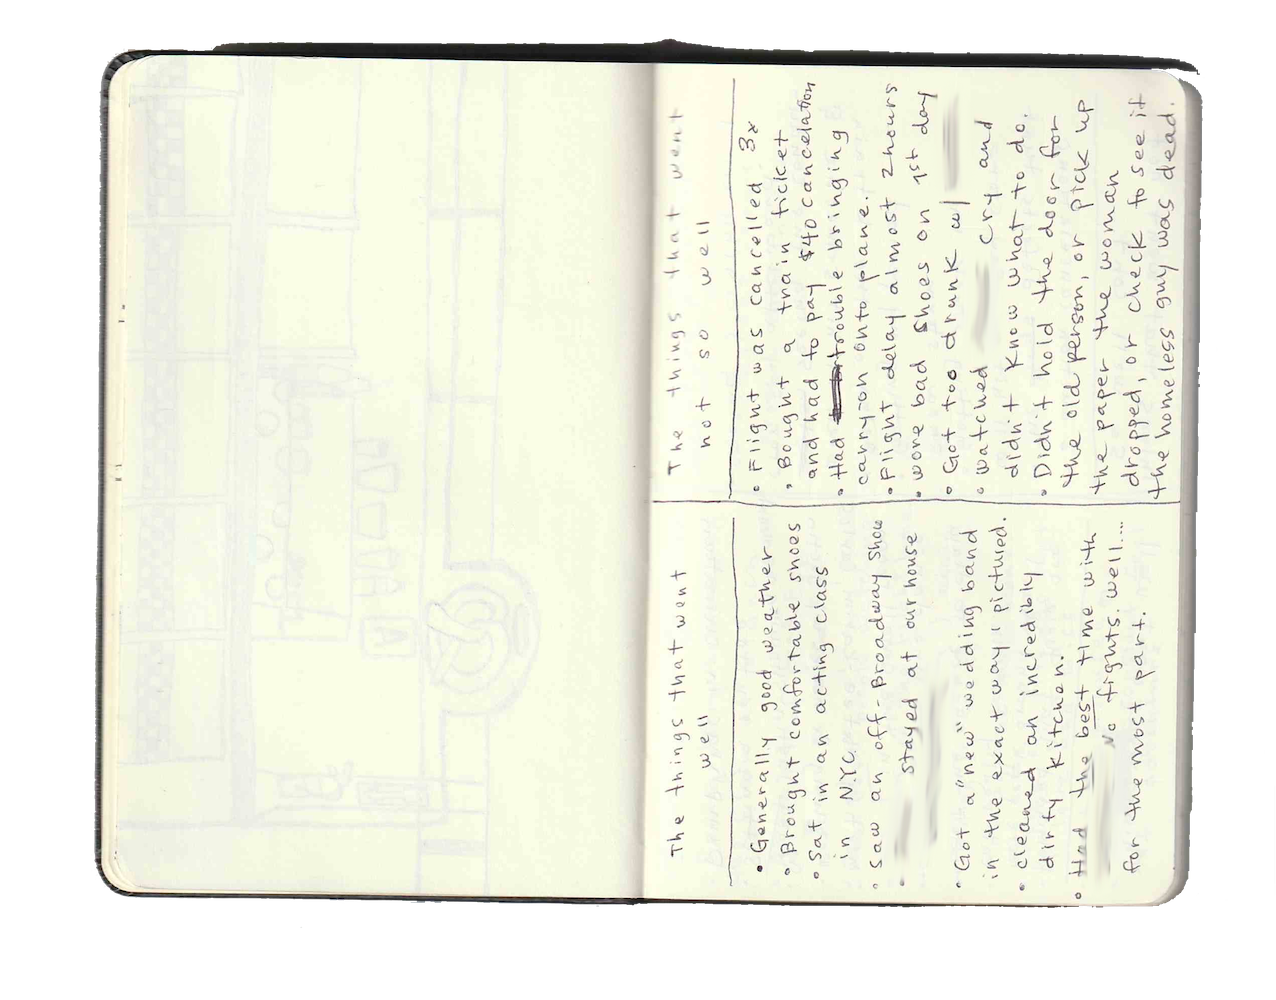 The things that went
well
• Generally good weather
• Brought comfortable shoes
• Sat in an acting class
in NYC
• Saw an off-Broadway show
• stayed at our house
• Got a "new" wedding band
in the exact way I pictured.
• cleaned an incredibly
dirty kitchen.
• Had the best time with
No fights. well....
for the most part.
The things that went
not so well
• Flight was cancelled 3x
• Bought a train ticket
and had to pay $40 cancelation
• Had trouble bringing
carry-on onto plane.
• Flight delay almost 2hours
• wore bad shoes on 1st day
• Got too drunk w/
• watched cry and
didn't know what to do.
• Didn't hold the door for
the old person, or pick up
the paper the woman
dropped, or check to see if
the homeless guy was dead.